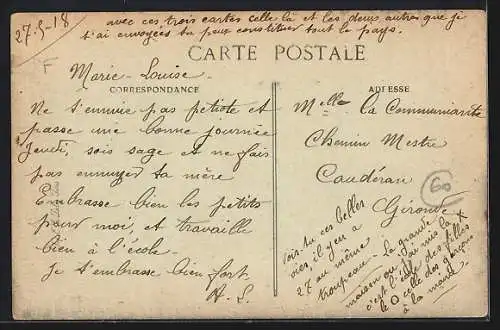 27-5-18
avec ces trois cartes celle là et les deux autres que je
t'ai envoyées tu peux constituer tout le pays.
F
CARTE POSTALE
Marie-Louise.
CORRESPONDANCE
ADRESSE
Ne t'ennuie pas petiote et
passe une bonne journée
Jeudi, sois sage et ne fais
pas ennuyer ta mère
Embrasse bien les petits
pour moi, et travaille
bien à l'école.
Je t'embrasse bien fort
A. L.
Melle La Communiante
Chemin Mestre
Caudéran
Gironde
60
Vois-tu ces belles
vies, il y en a
27 au même
troupeau
la grande
maison ou j'ai mis la X
c'est l'école des filles
le O celle des garçons
à la main